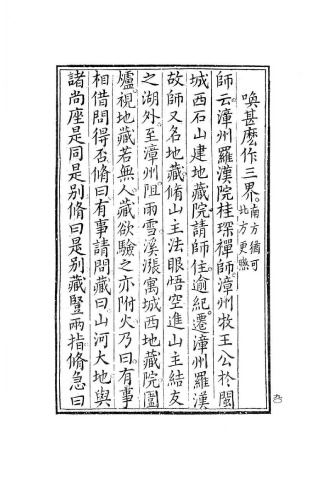 喚甚麽作三界。南方猶可北方更䁠
師云。漳州羅漢院桂琛禪師。漳州牧王公於閩
城西石山建地藏院。請師住。逾紀。遷漳州羅漢
故師又名地藏。脩山主法眼悟空進山主。結友
之湖外。至漳州。阻雨雪溪漲。寓城西地藏院圍
爐。視地藏若無人。藏欲驗之。亦附火。乃曰。有事
相借問得否。脩曰。有事請問。藏曰。山河大地與
諸尚座是同是別。脩曰是別。藏竪兩指。脩急曰